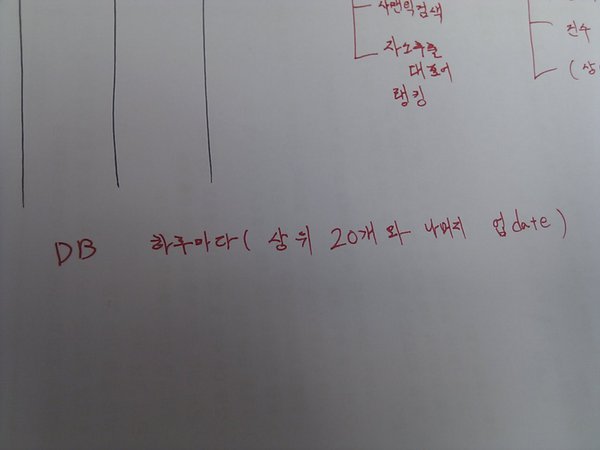 시맨틱검색
전수
대표어
(상
랭킹
DB 하루마다( 상위 20개와 나머지 업date)